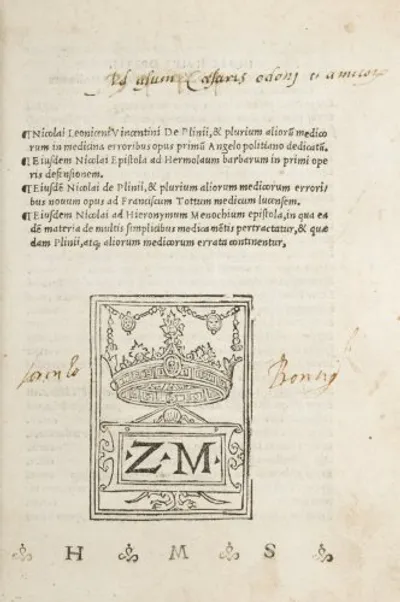 Ad usum Cæsaris odonj et amicor
¶Nicolai Leoniceni Vincentini De Plinii, & plurium alioru᷉ medico
rum in medicina erroribus opus primu᷉ Angelo politiano dedicatu᷉.
¶Eiusdem Nicolai Epistola ad Hermolaum barbarum in primi ope
ris defensionem.
¶Eiusde᷉ Nicolai de Plinii, & plurium aliorum medicorum errori
bus nouum opus ad Franciscum Tottum medicum lucensem.
¶Eiusdem Nicolai ad Hieronymum Menochium epistola, in qua ea
de᷉ materia de multis simplicibus medicame᷉tis pertractatur, & quæ
dam Plinii, atq; aliorum medicorum errata continentur,
·Z·M·
H M S